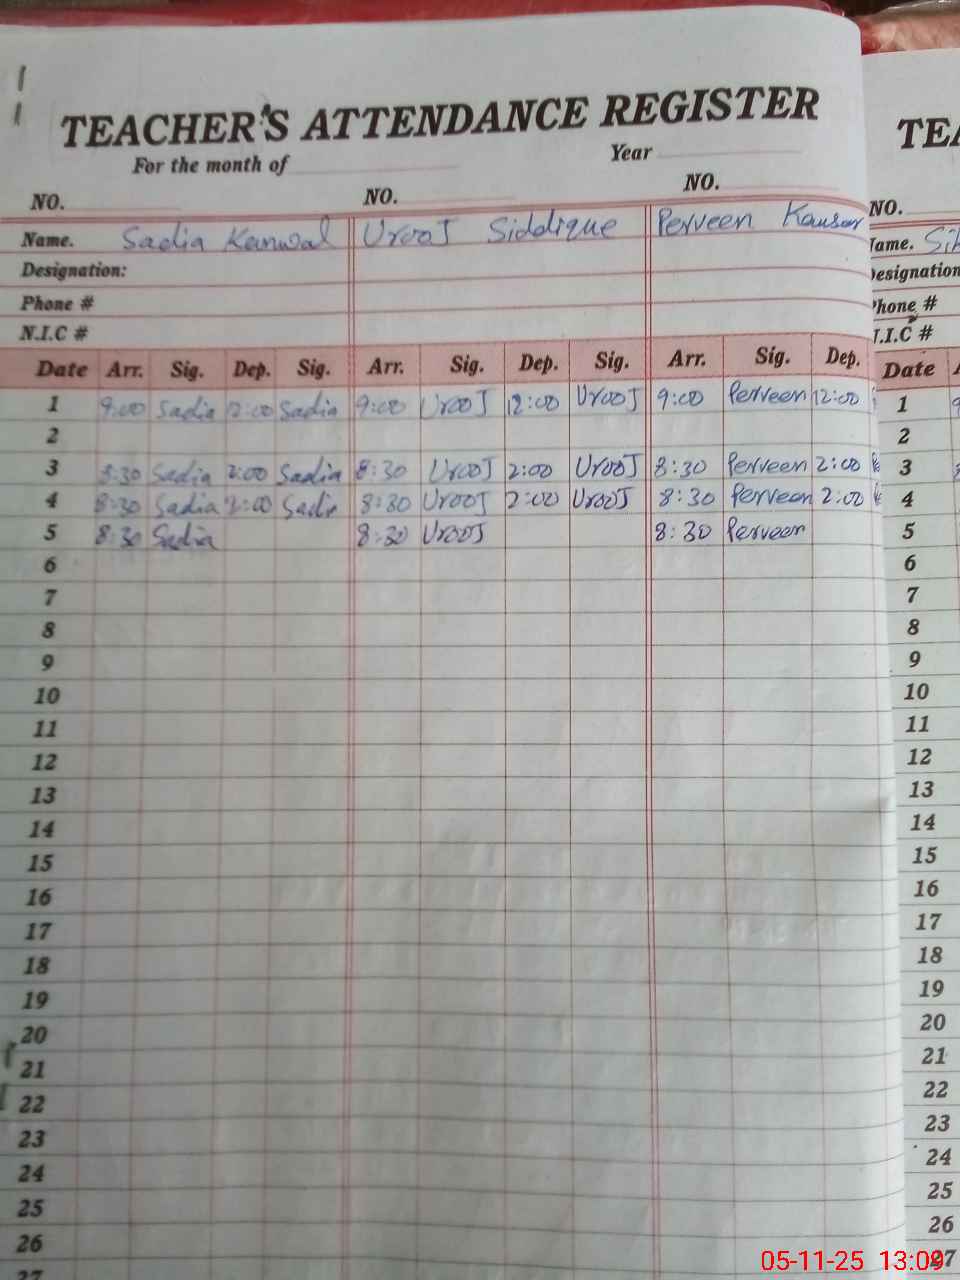 TEACHER'S ATTENDANCE REGISTER
For the month of Year
NO. NO. NO.
Name. Sadia Kanwal Urooj Siddique Perveen Kausar
Designation:
Phone #
N.I.C #
Date Arr. Sig. Dep. Sig. Arr. Sig. Dep. Sig. Arr. Sig. Dep.
1 9:00 Sadia 12:00 Sadia 9:00 Urooj 12:00 Urooj 9:00 Perveen 12:00
2
3 8:30 Sadia 2:00 Sadia 8:30 Urooj 2:00 Urooj 8:30 Perveen 2:00
4 8:30 Sadia 2:00 Sadia 8:30 Urooj 2:00 Urooj 8:30 Perveen 2:00
5 8:30 Sadia 8:30 Urooj 8:30 Perveen
6
7
8
9
10
11
12
13
14
15
16
17
18
19
20
21
22
23
24
25
26
27
TEA
NO.
Name.
Designation
Phone #
N.I.C #
Date
1
2
3
4
5
6
7
8
9
10
11
12
13
14
15
16
17
18
19
20
21
22
23
24
25
26
27
05-11-25 13:09